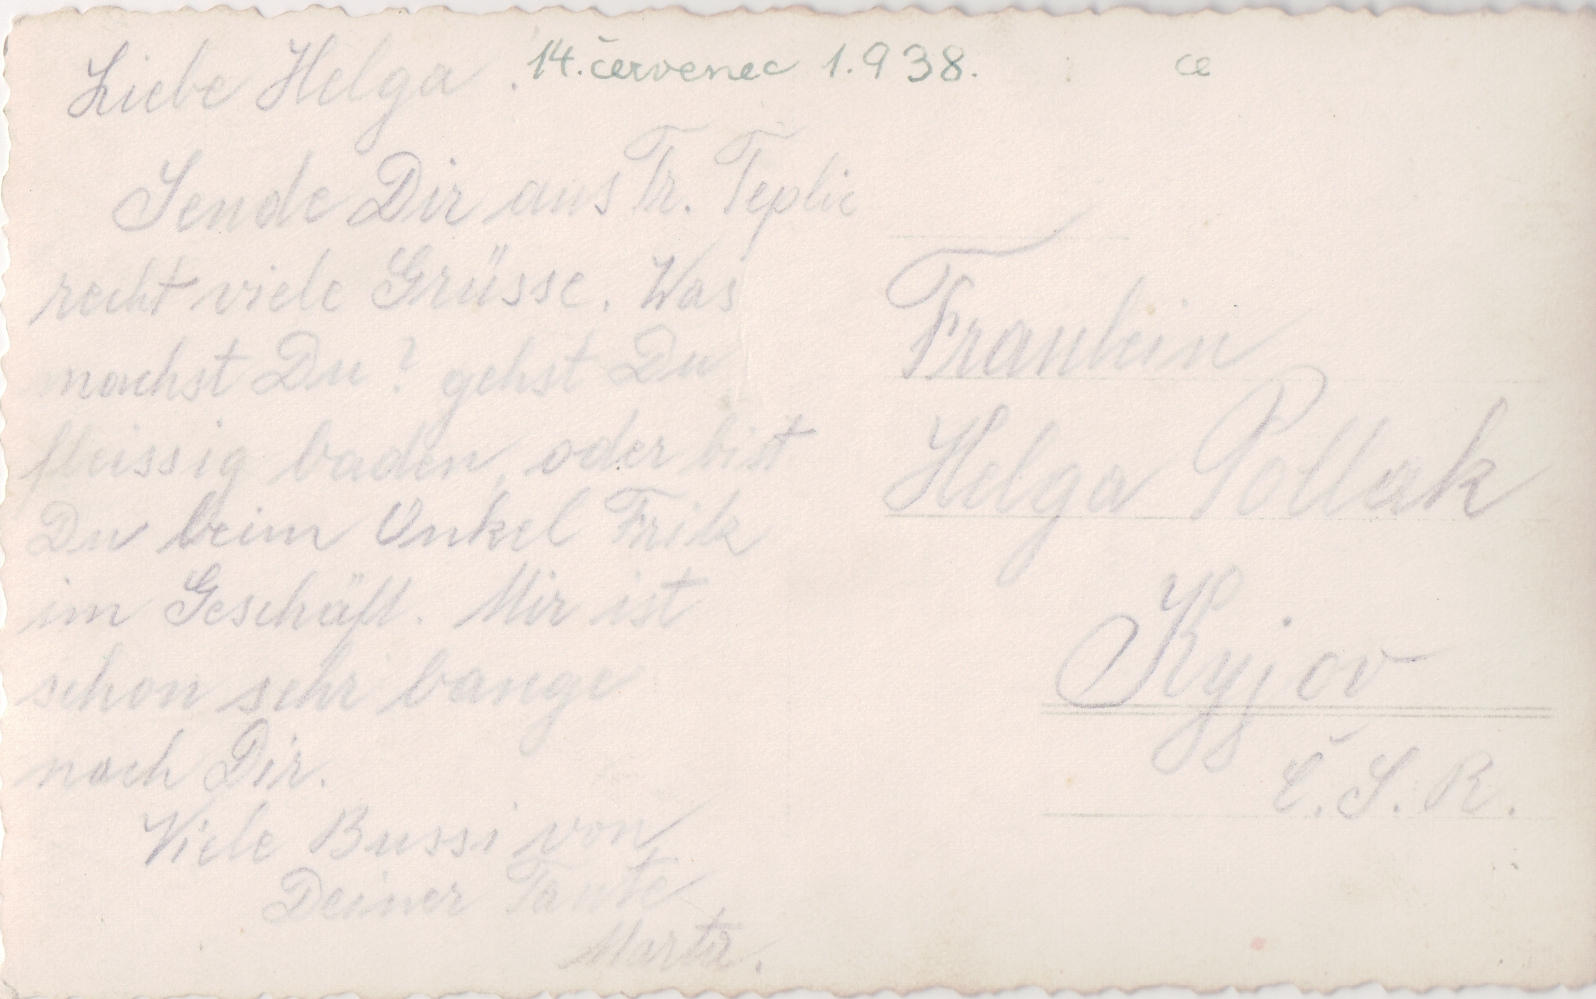 Liebe Helga. 14. červenec 1.938. ce
Sende Dir aus Tr. Teplic
recht viele Grüsse. Was
machst Du? gehst Du
fleissig baden, oder bist
Du beim Onkel Fritz
im Geschäft. Mir ist
schon sehr bange
nach Dir.
Viele Bussi von
Deiner Tante
Marta.
Fraulein
Helga Pollak
Kyjov
Č.S.R.